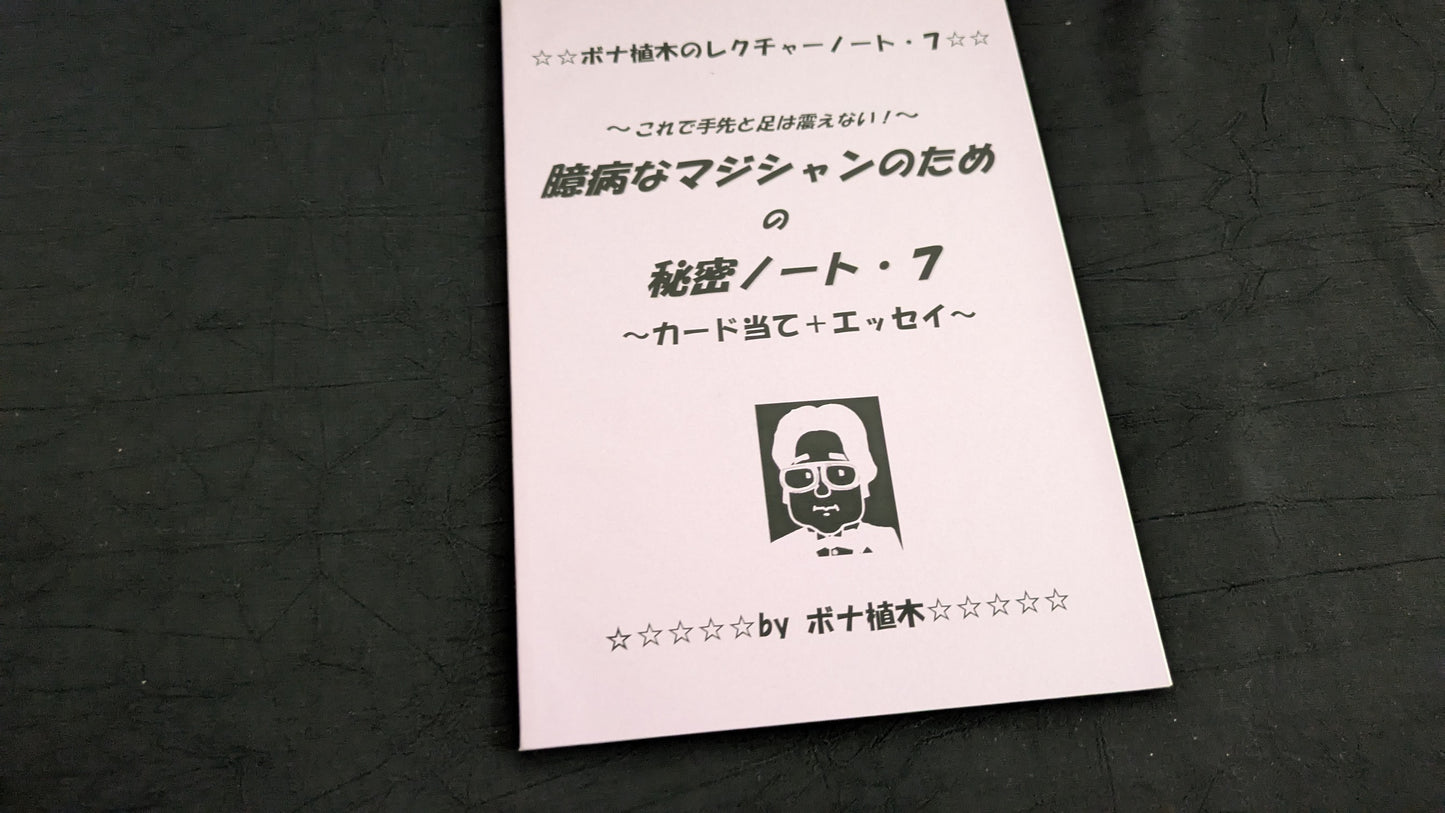 ☆☆ボナ植木のレクチャーノート・7☆☆
～これで手先と足は震えない！～
臆病なマジシャンのため
の
秘密ノート・7
～カード当て＋エッセイ～
☆☆☆☆☆by ボナ植木☆☆☆☆☆